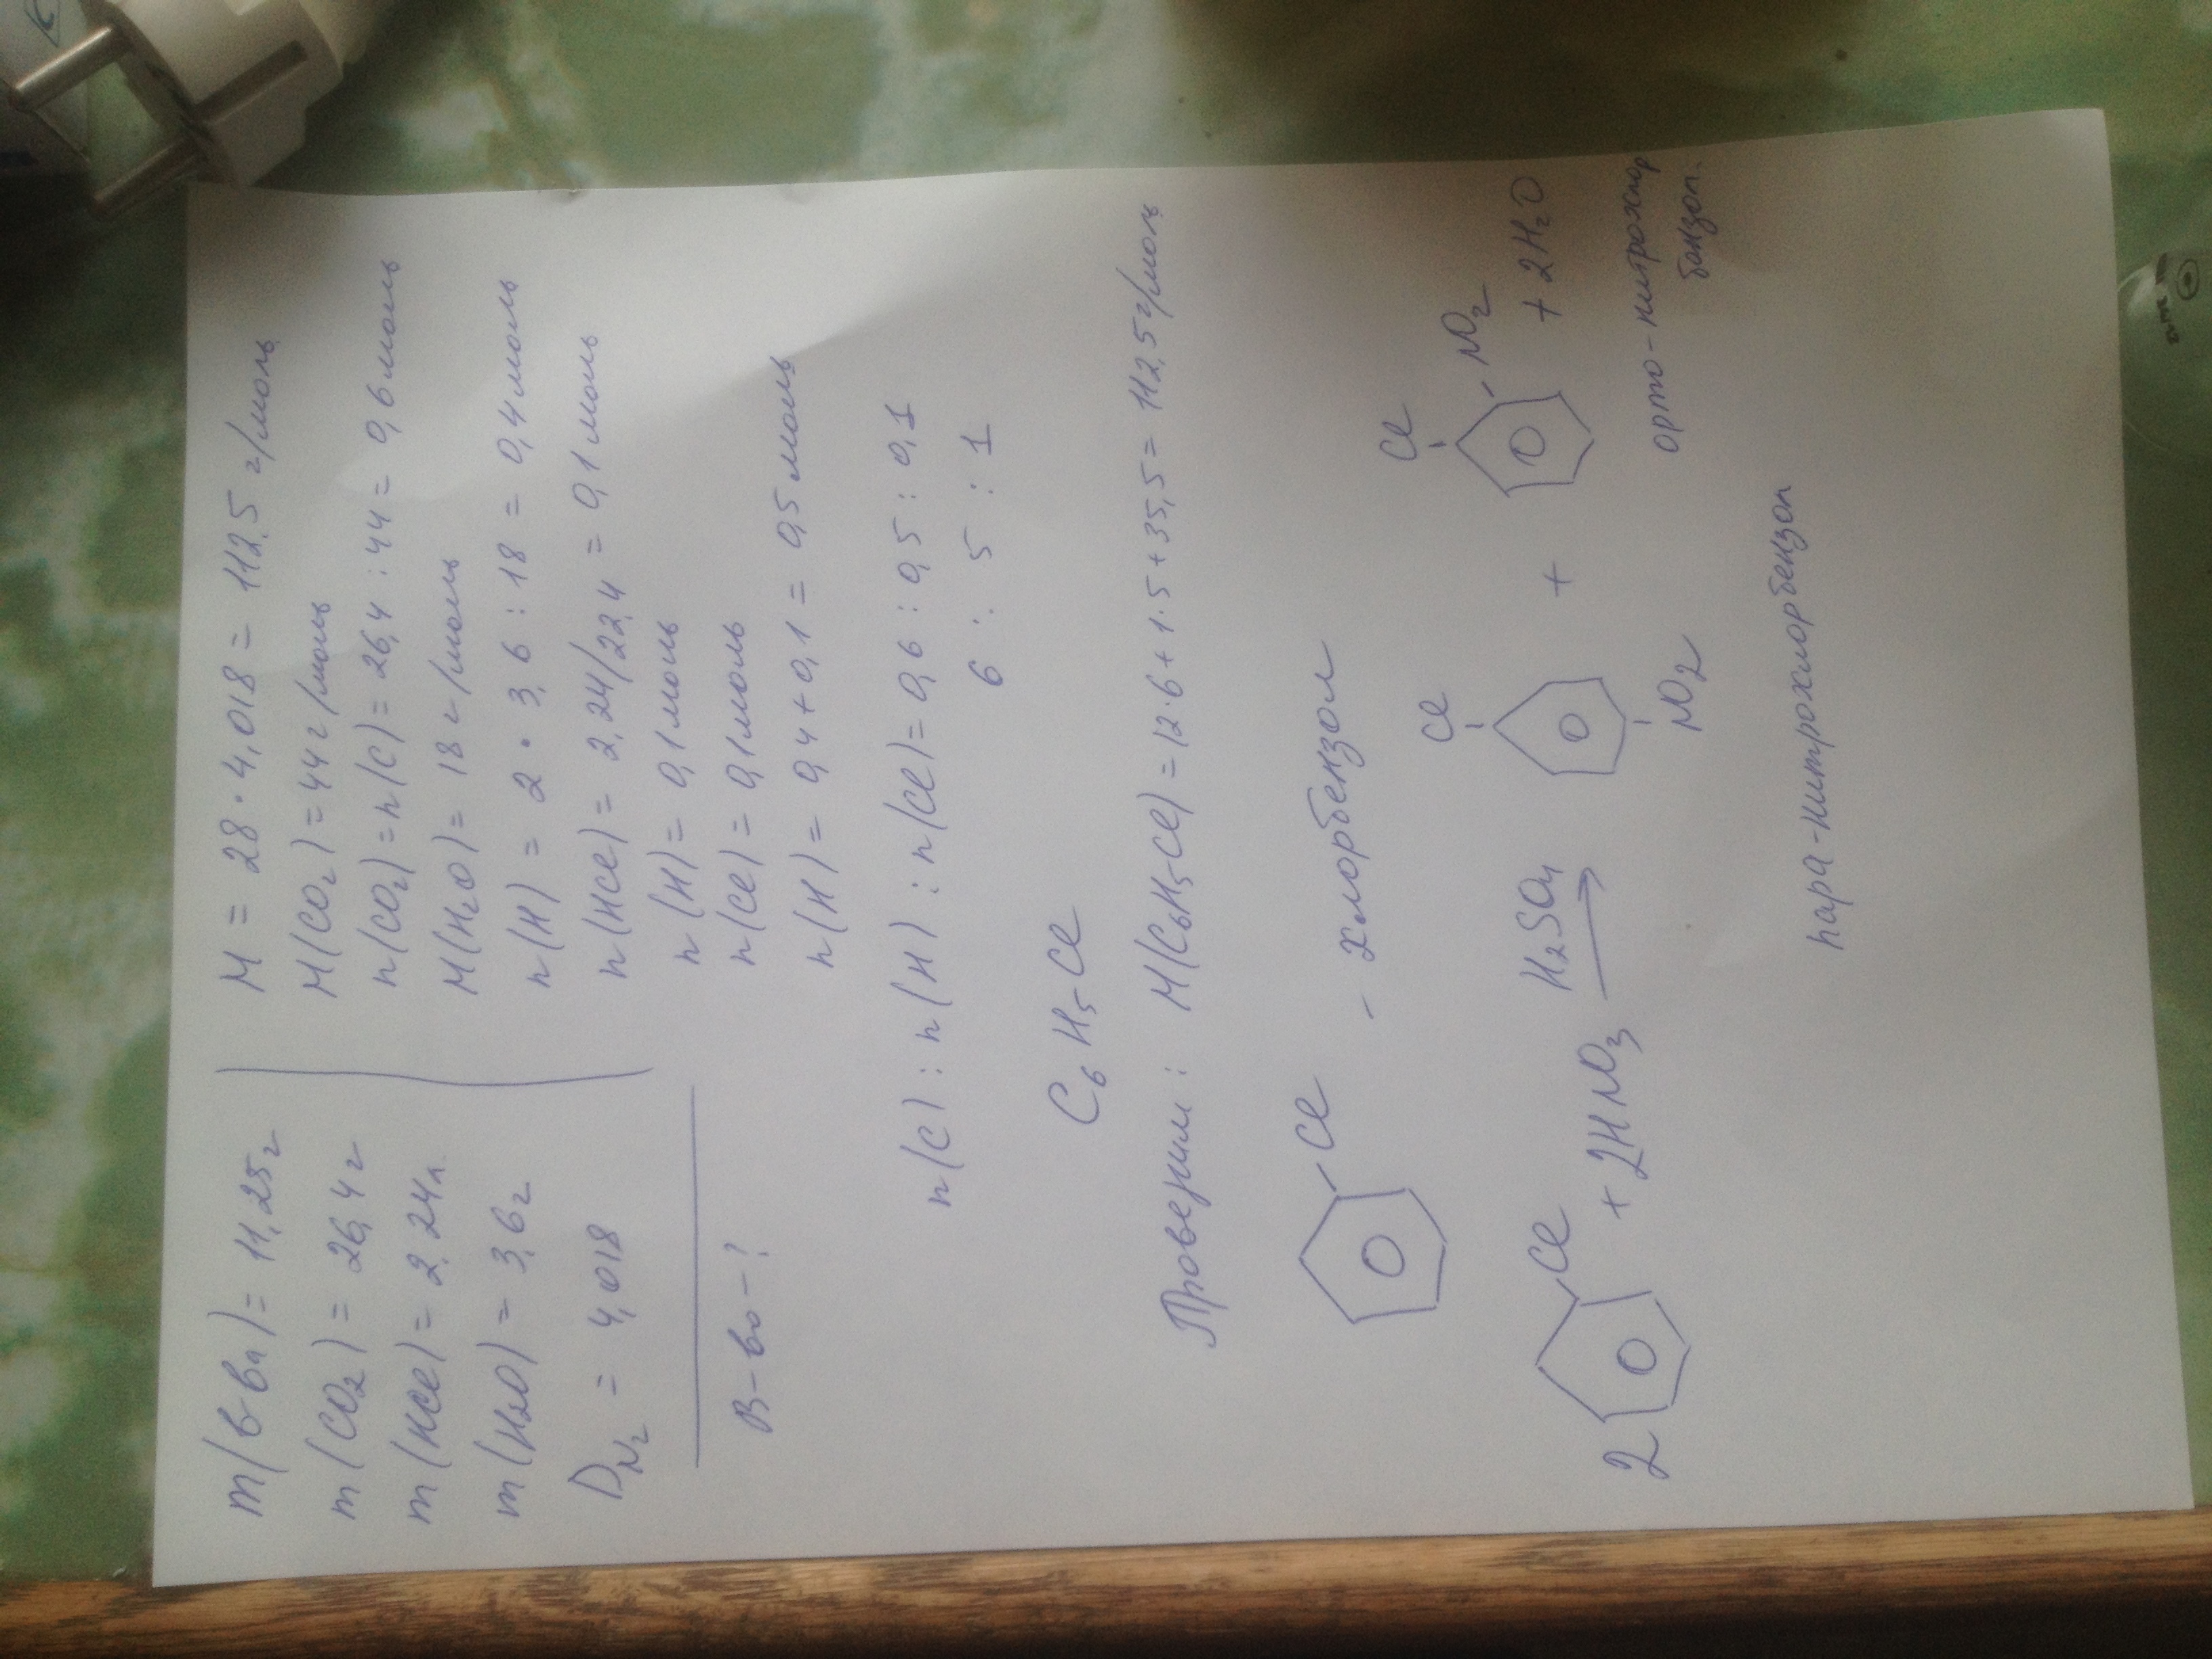 m(в-ва) = 11,25г
m(CO2) = 26,4г
m(HCl) = 2,24л
m(H2O) = 3,6г
DN2 = 4,018
В-во-?
M = 28·4,018 = 112,5 г/моль
M(CO2) = 44г/моль
n(CO2) = n(C) = 26,4 : 44 = 0,6 моль
M(H2O) = 18 г/моль
n(H) = 2 · 3,6 : 18 = 0,4 моль
n(HCl) = 2,24/22,4 = 0,1 моль
n(H) = 0,1 моль
n(Cl) = 0,1 моль
n(H) = 0,4 + 0,1 = 0,5 моль
n(C) : n(H) : n(Cl) = 0,6 : 0,5 : 0,1
6 : 5 : 1
C6H5Cl
Проверим: M(C6H5Cl) = 12·6 + 1·5 + 35,5 = 112,5 г/моль
Cl - хлорбензол
Cl Cl
2 Cl + 2HNO3 H2SO4 → + NO2 + 2H2O
NO2
орто-нитрохлор
бензол.
пара-нитрохлорбензол